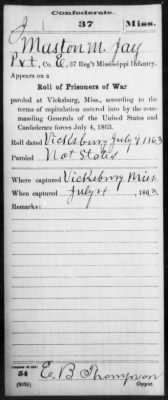 Confederate.
J 37 Miss.
Muston M. Jay
Pvt, Co. E, 37 Reg't Mississippi Infantry.
Appears on a
Roll of Prisoners of War
paroled at Vicksburg, Miss., according to the
terms of capitulation entered into by the com-
manding Generals of the United States and
Confederate forces July 4, 1863.
Roll dated Vicksburg July 9 1863
Paroled Not Stated
Where captured Vicksburg Miss
When captured July 4, 1863.
Remarks:
Number of roll:
54
E. B. Thompson
(639b) Copyist.